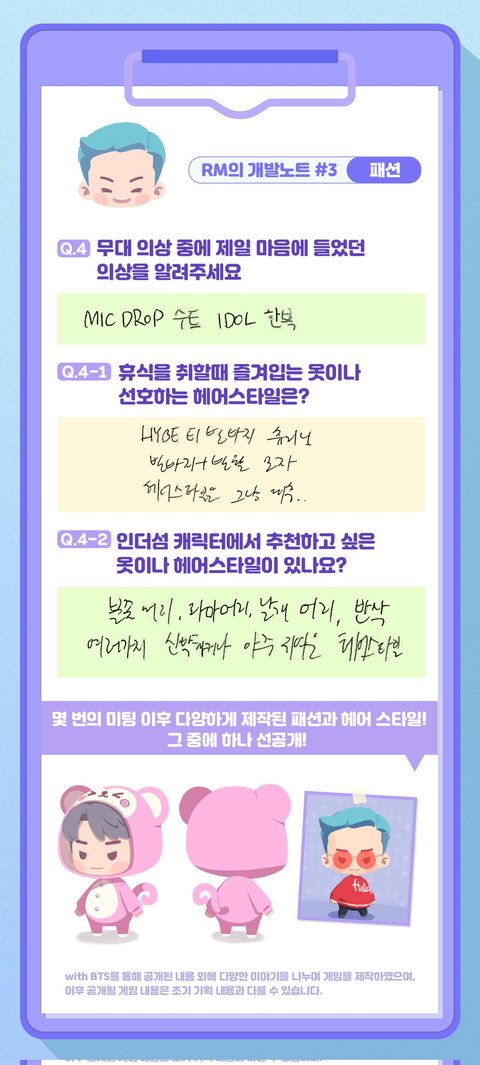 RM의 개발노트 #3 패션
Q.4 무대 의상 중에 제일 마음에 들었던
의상을 알려주세요
MIC DROP 수트 IDOL 한복
Q.4-1 휴식을 취할때 즐겨입는 옷이나
선호하는 헤어스타일은?
HYBE 티 반바지 츄리닝
반바지+반팔 모자
헤어스타일은 그냥 대충..
Q.4-2 인더섬 캐릭터에서 추천하고 싶은
옷이나 헤어스타일이 있나요?
불꽃 머리, 라마머리, 날개 머리, 반삭
여러가지 신박하거나 아주 작은 헤어스타일
몇 번의 미팅 이후 다양하게 제작된 패션과 헤어 스타일!
그 중에 하나 선공개!
Hello
with BTS를 통해 공개된 내용 외에 다양한 이야기를 나누며 게임을 제작하였으며,
이후 공개될 게임 내용은 초기 기획 내용과 다를 수 있습니다.